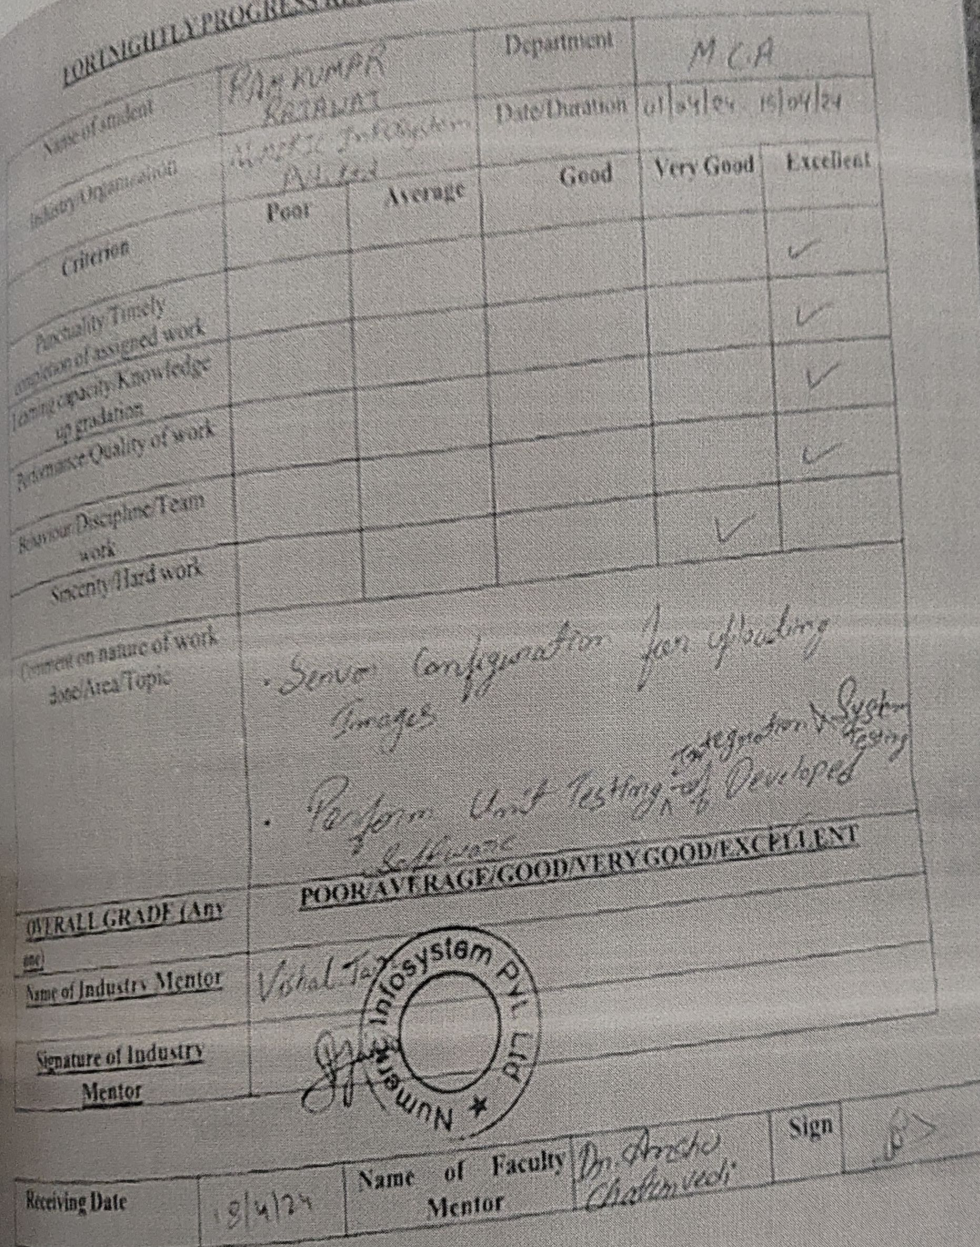 FORTNIGHTLY PROGRESS
Name of student
RAM KUMAR
RAJAWAT
Department
M C A
Industry/Organization
Infosystem
Pvt. Ltd
Date/Duration
01/04/24 15/04/24
Criterion
Poor
Average
Good
Very Good
Excellent
Punctuality/Timely
completion of assigned work
✓
Learning capacity/Knowledge
up gradation
✓
Performance/Quality of work
✓
Behaviour/Discipline/Team
work
✓
Sincerity/Hard work
✓
Comment on nature of work
done/Area/Topic
· Server Configuration for uploading
Images
Integration & System
Testing
· Perform Unit Testing of Developed
Software
OVERALL GRADE (Any
one)
POOR/AVERAGE/GOOD/VERY GOOD/EXCELLENT
Name of Industry Mentor
Vishal
Signature of Industry
Mentor
Numeric Infosystem Pvt. Ltd ★
Receiving Date
18/4/24
Name of Faculty
Mentor
Dr. Anshu
Chaturvedi
Sign